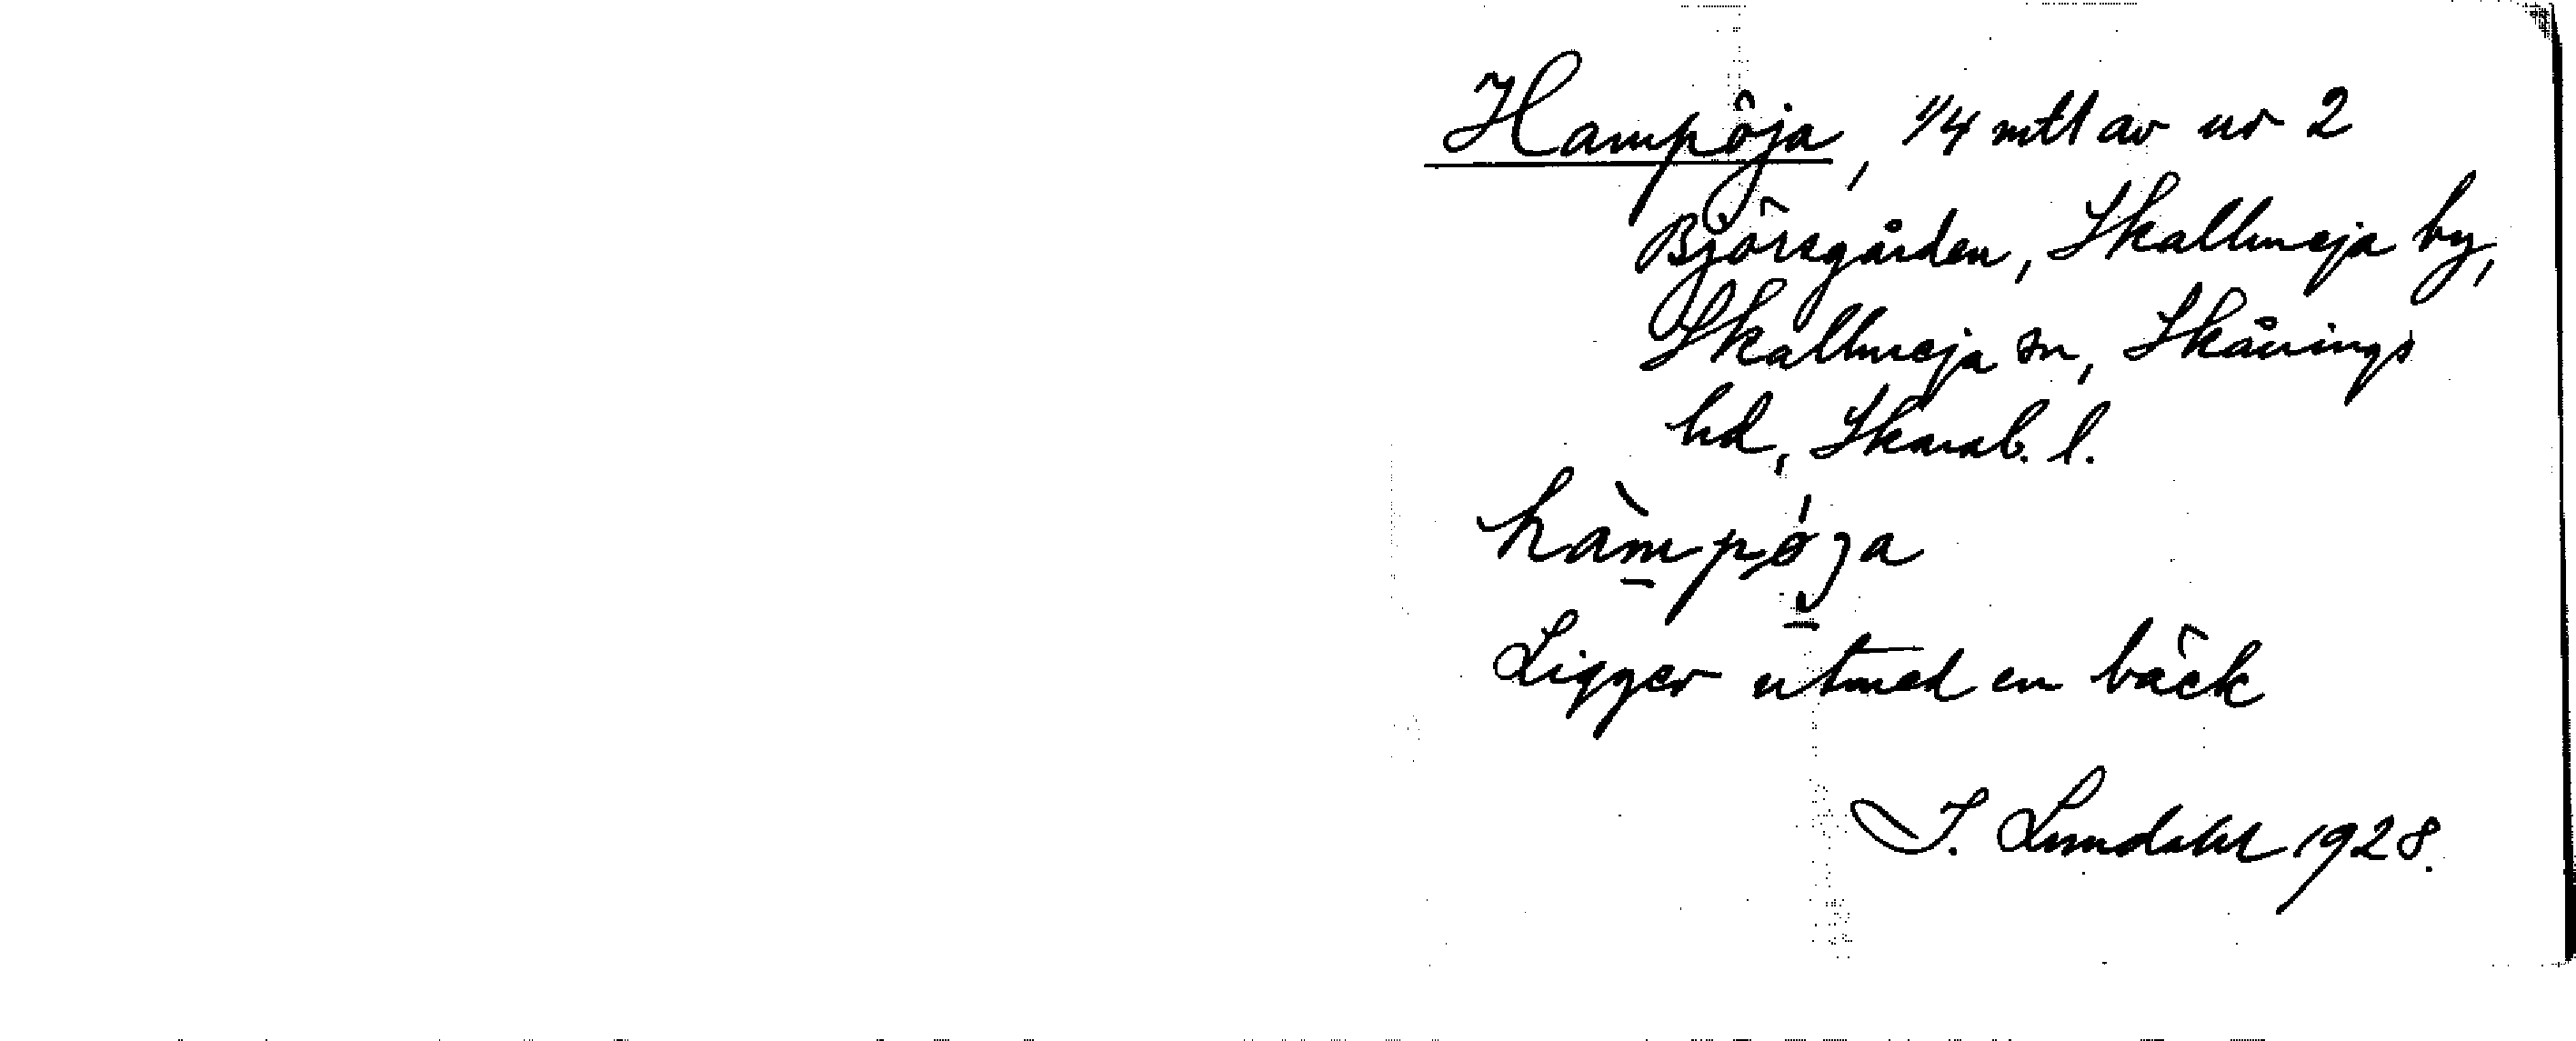 Hampöja, 1/4 mtl av nr 2
Björsgården, Skallmeja by,
Skallmeja sn, Skånings
hd, Skarab. l.
hàmpøja
Ligger utmed en bäck
I. Lundahl 1928.